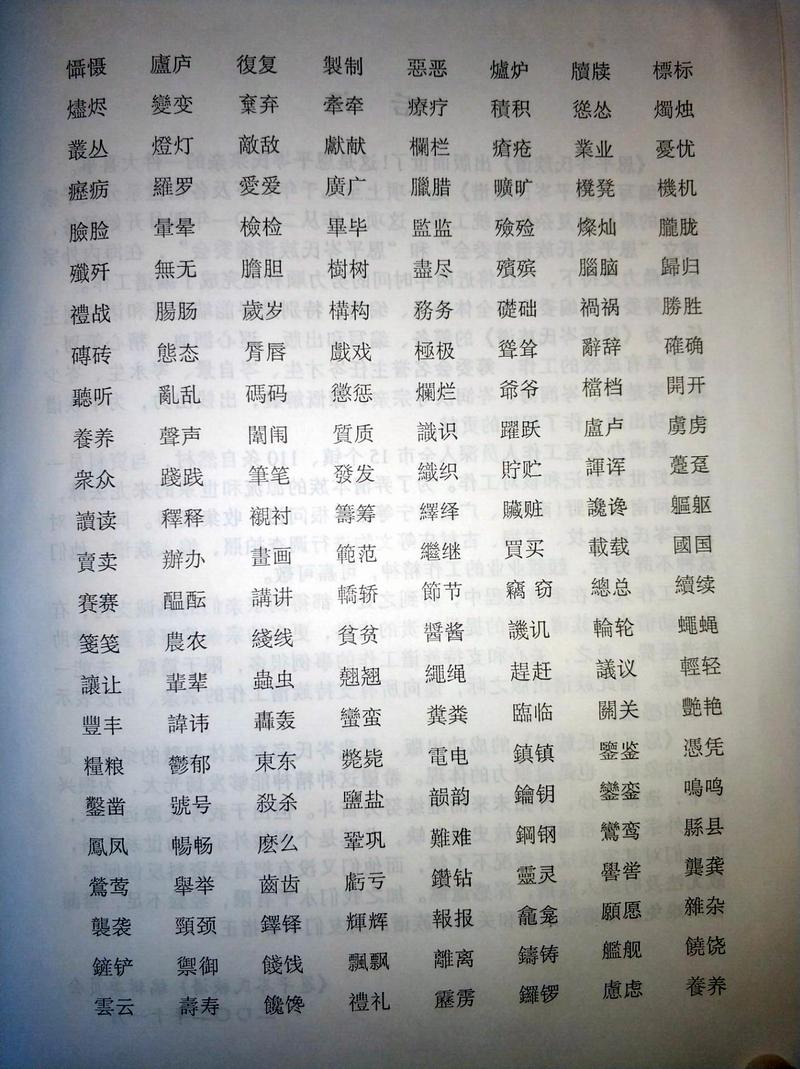 懾慑 廬庐 復复 製制 惡恶 爐炉 牘牍 標标
燼烬 變变 棄弃 牽牵 療疗 積积 慫怂 燭烛
叢丛 燈灯 敵敌 獻献 欄栏 瘡疮 業业 憂忧
癧疬 羅罗 愛爱 廣广 臘腊 曠旷 櫈凳 機机
臉脸 暈晕 檢检 畢毕 監监 殮殓 燦灿 朧胧
殲歼 無无 膽胆 樹树 盡尽 殯殡 腦脑 歸归
禮战 腸肠 歲岁 構构 務务 礎础 禍祸 勝胜
磚砖 態态 脣唇 戲戏 極极 聳耸 辭辞 確确
聽听 亂乱 碼码 懲惩 爛烂 爺爷 檔档 開开
養养 聲声 闈闱 質质 識识 躍跃 盧卢 虜虏
衆众 踐践 筆笔 發发 織织 貯贮 諢诨 躉趸
讀读 釋释 襯衬 籌筹 繹绎 贜赃 讒谗 軀躯
賣卖 辦办 畫画 範范 繼继 買买 載载 國国
賽赛 醖酝 講讲 轎轿 節节 竊窃 總总 續续
箋笺 農农 綫线 貧贫 醬酱 譏讥 輪轮 蠅蝇
讓让 輩辈 蟲虫 翹翘 繩绳 趕赶 議议 輕轻
豐丰 諱讳 轟轰 蠻蛮 糞粪 臨临 關关 艷艳
糧粮 鬱郁 東东 斃毙 電电 鎮镇 鑒鉴 憑凭
鑿凿 號号 殺杀 鹽盐 韻韵 鑰钥 鑾銮 鳴鸣
鳳凤 暢畅 麽么 鞏巩 難难 鋼钢 鸞鸾 縣县
鶯莺 舉举 齒齿 虧亏 鑽钻 靈灵 譽誉 龔龚
襲袭 頸颈 鐸铎 輝辉 報报 龕龛 願愿 雜杂
鏟铲 禦御 餞饯 飄飘 離离 鑄铸 艦舰 饒饶
雲云 壽寿 饞馋 禮礼 靂雳 鑼锣 慮虑 養养